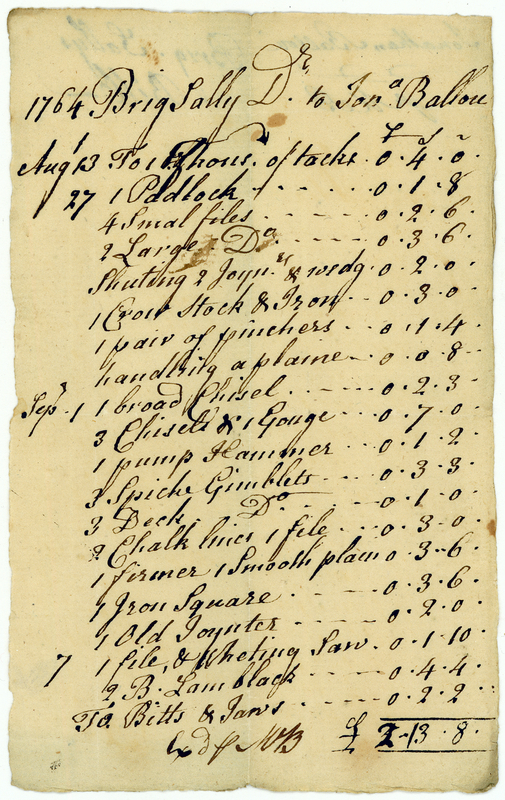 1764 Brig Sally Dr. to Jona. Ballou
£ s
Augt 13 To 1 thous. of tacks 0.4.0
27 1 Padlock 0.1.8
4 Smal files 0.2.6.
2 Large Do 0.3.6.
Shuting 2 Joyn.rs & wedg. 0.2.0.
1 Crow Stock & Iron 0.3.0
1 pair of pinchers 0.1.4.
handling a plaine 0.0.8.
Sepr. 1 1 broad Chisel 0.2.3.
3 Chisels & 1 Gouge 0.7.0.
1 pump Hammer 0.1.2.
3 Spicke Gimblets 0.3.3.
3 Deck Do 0.1.0.
2 Chalk lines 1 file 0.3.0.
1 firmer 1 Smooth plain 0.3.6.
1 Iron Square 0.3.6.
1 Old Joynter 0.2.0.
7 1 file, & Wheting Saw. 0.1.10.
2 B. Lamblack 0.4.4.
To Bitts & Jaws 0.2.2.
£ 2.13.8.